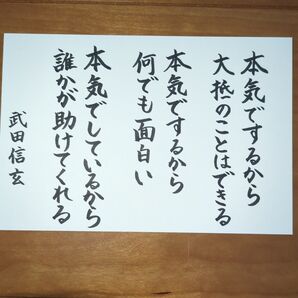 本気でするから
大抵のことはできる
本気でするから
何でも面白い
本気でしているから
誰かが助けてくれる
武田信玄